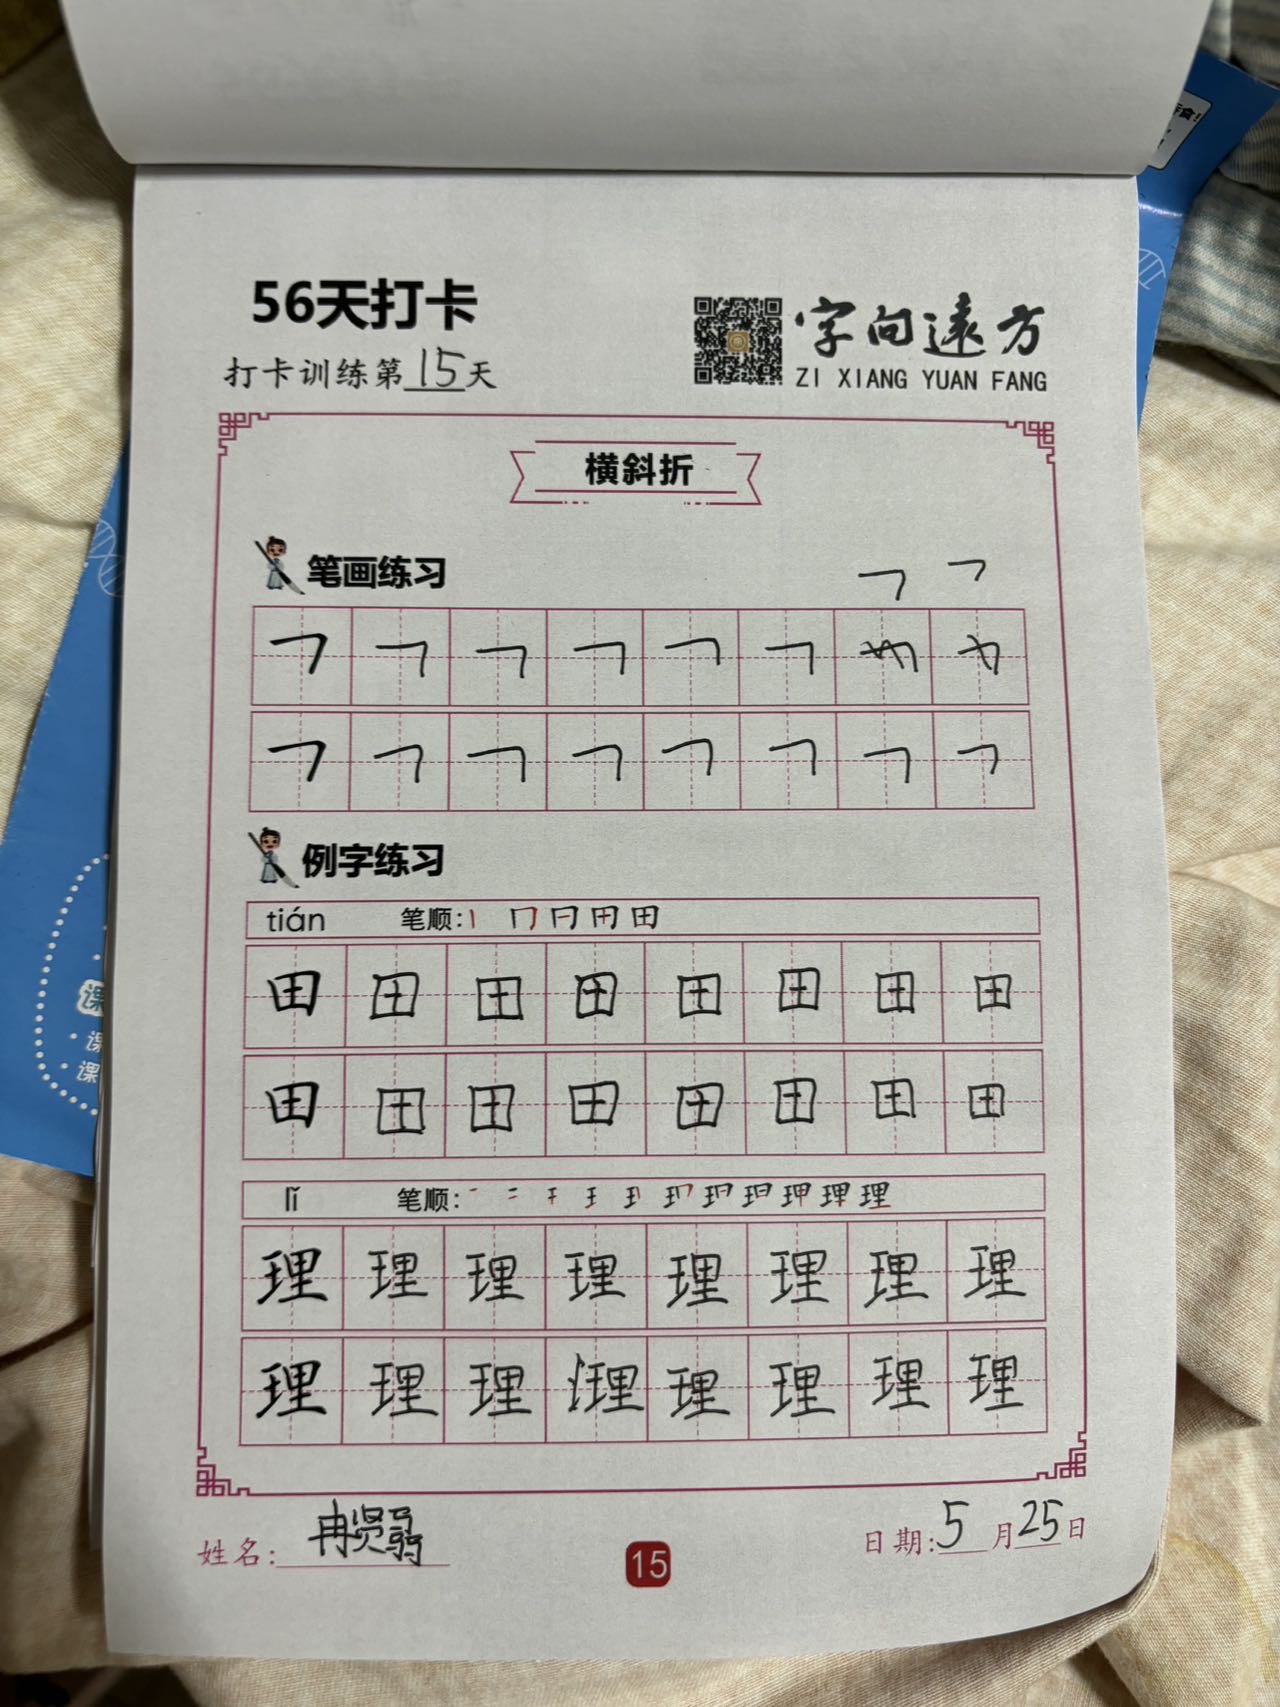 56天打卡
打卡训练第15天
字向遠方
ZI XIANG YUAN FANG
横斜折
笔画练习
例字练习
tián 笔顺:丨 冂 日 田 田
田 田 田 田 田 田 田 田
田 田 田 田 田 田 田 田
lǐ 笔顺: 理
理 理 理 理 理 理 理 理
理 理 理 理 理 理 理 理
姓名: 冉贤
15
日期:5月25日
课
课
课